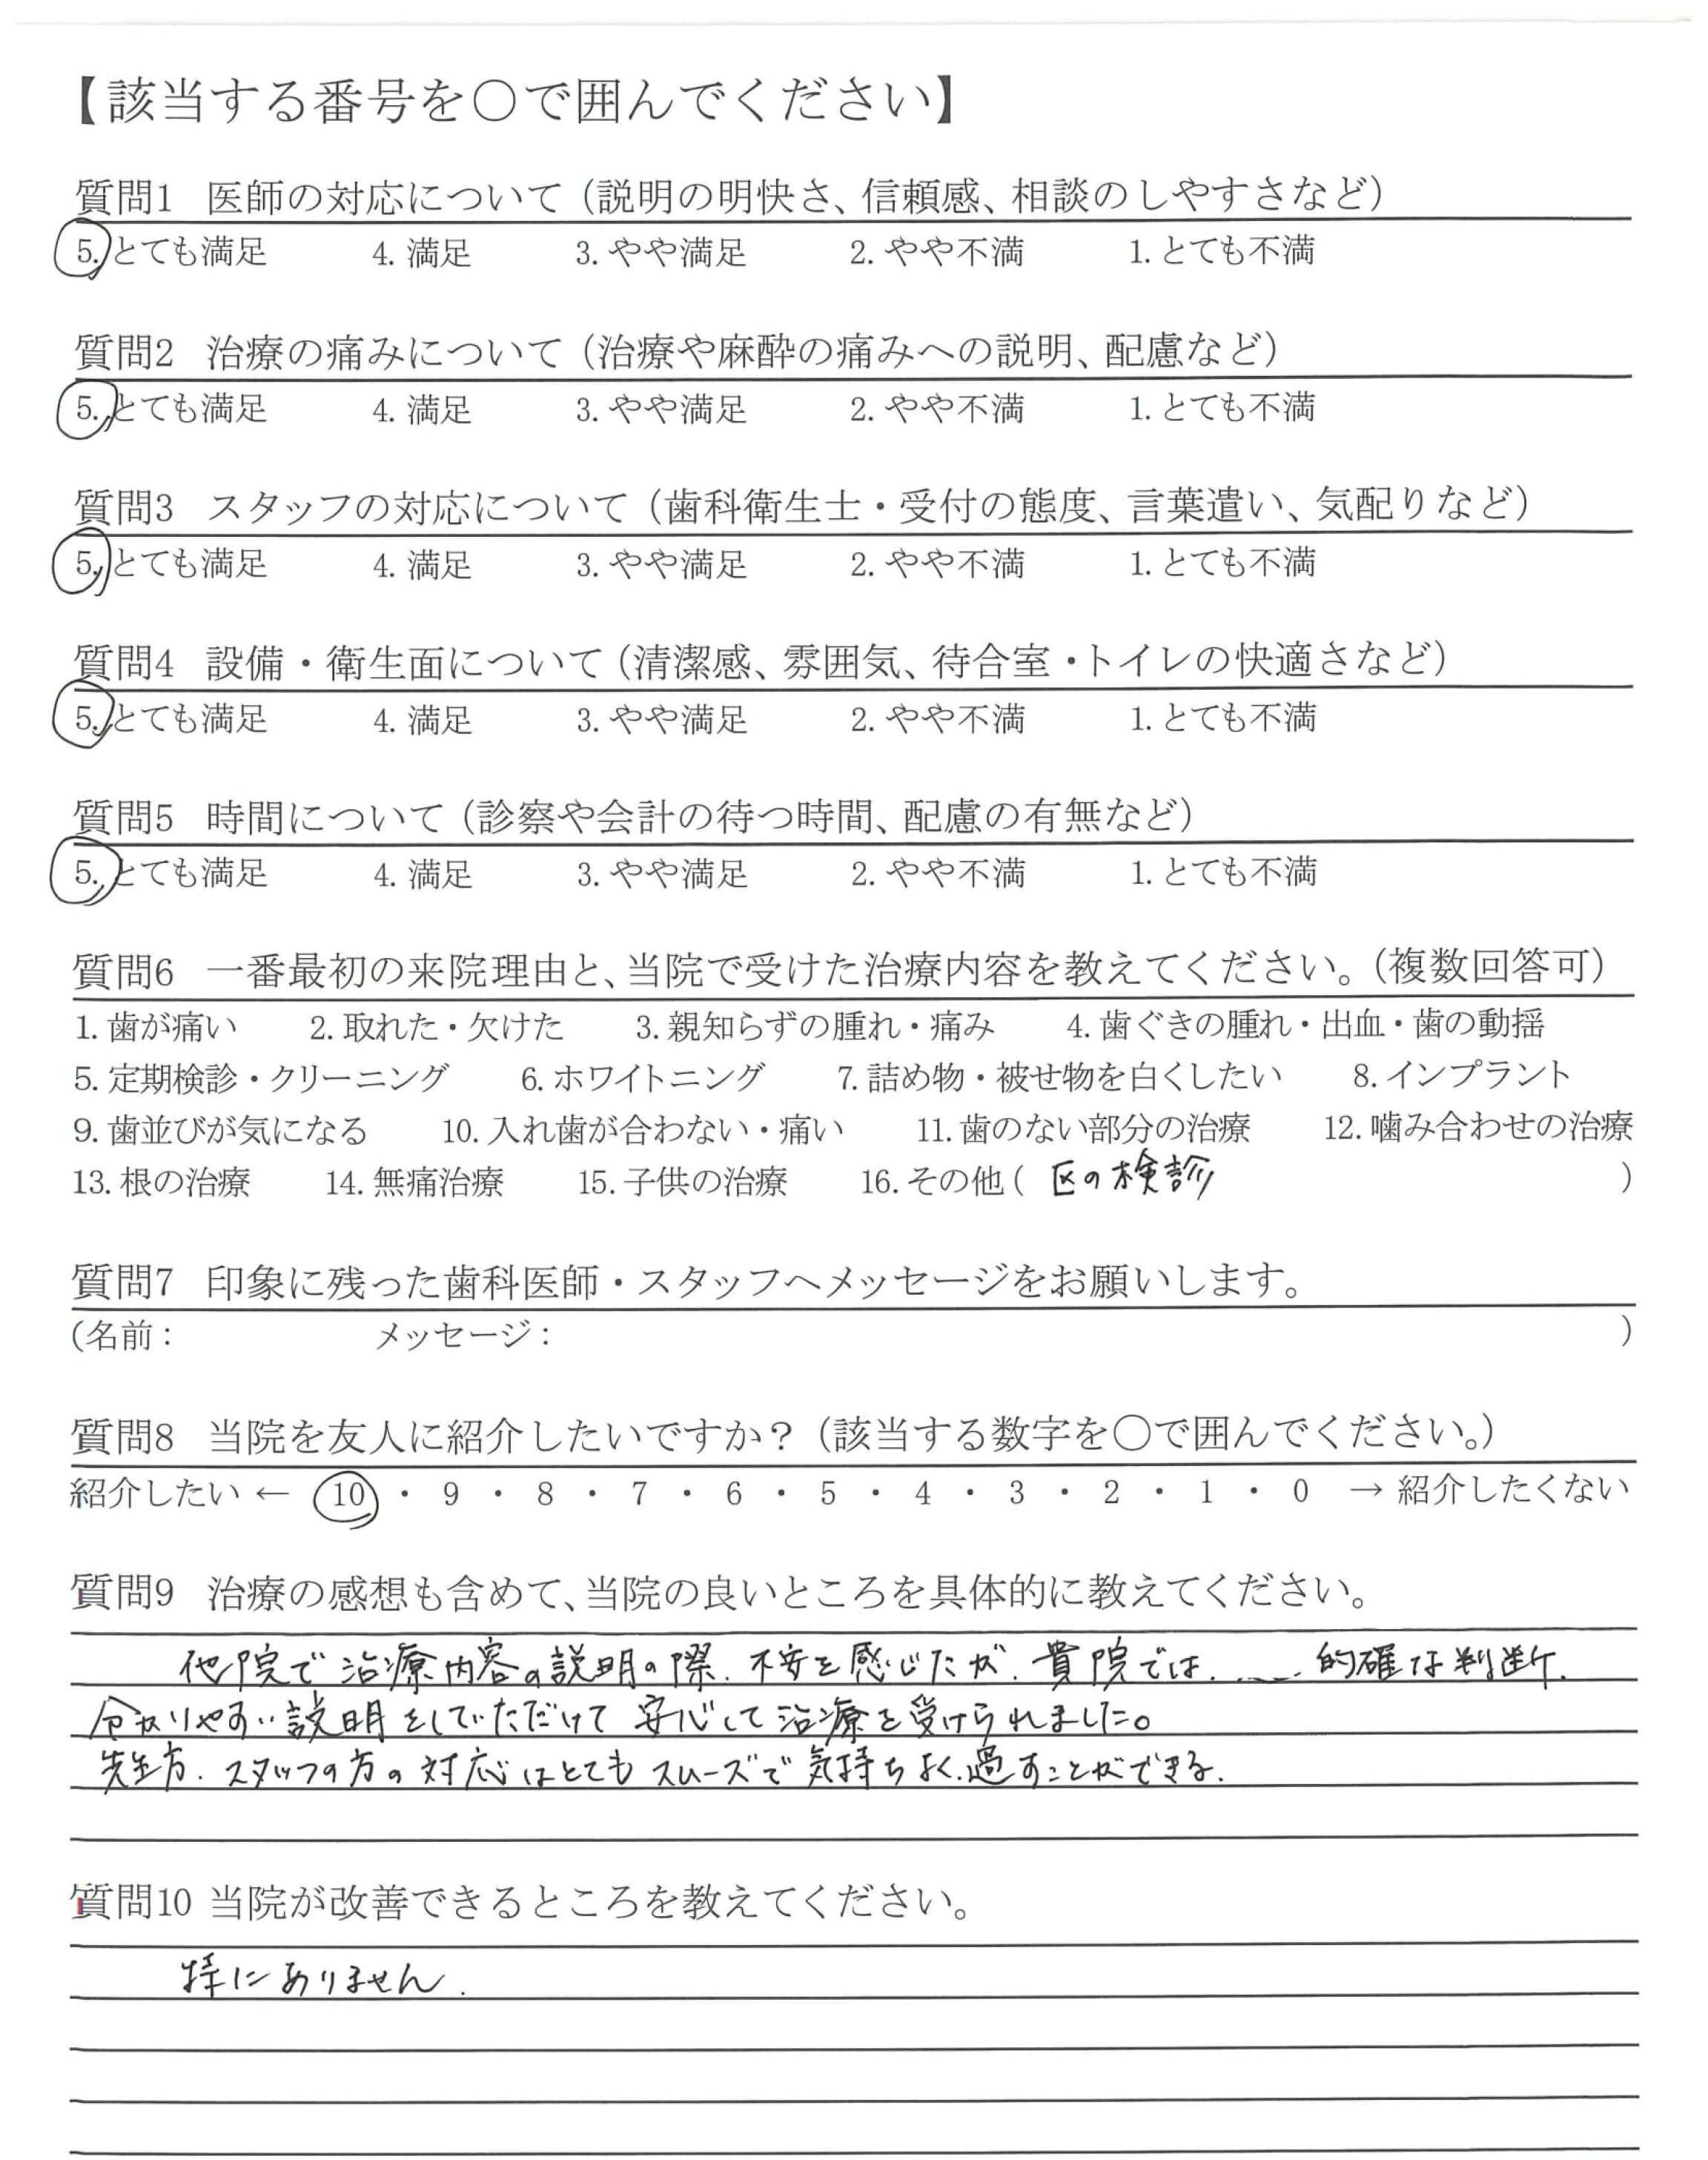 【該当する番号を〇で囲んでください】
質問1 医師の対応について（説明の明快さ、信頼感、相談のしやすさなど）
5. とても満足 4. 満足 3. やや満足 2. やや不満 1. とても不満
質問2 治療の痛みについて（治療や麻酔の痛みへの説明、配慮など）
5. とても満足 4. 満足 3. やや満足 2. やや不満 1. とても不満
質問3 スタッフの対応について（歯科衛生士・受付の態度、言葉遣い、気配りなど）
5. とても満足 4. 満足 3. やや満足 2. やや不満 1. とても不満
質問4 設備・衛生面について（清潔感、雰囲気、待合室・トイレの快適さなど）
5. とても満足 4. 満足 3. やや満足 2. やや不満 1. とても不満
質問5 時間について（診察や会計の待つ時間、配慮の有無など）
5. とても満足 4. 満足 3. やや満足 2. やや不満 1. とても不満
質問6 一番最初の来院理由と、当院で受けた治療内容を教えてください。（複数回答可）
1. 歯が痛い 2. 取れた・欠けた 3. 親知らずの腫れ・痛み 4. 歯ぐきの腫れ・出血・歯の動揺
5. 定期検診・クリーニング 6. ホワイトニング 7. 詰め物・被せ物を白くしたい 8. インプラント
9. 歯並びが気になる 10. 入れ歯が合わない・痛い 11. 歯のない部分の治療 12. 噛み合わせの治療
13. 根の治療 14. 無痛治療 15. 子供の治療 16. その他（ 区の検診 ）
質問7 印象に残った歯科医師・スタッフへメッセージをお願いします。
（名前： メッセージ： ）
質問8 当院を友人に紹介したいですか？（該当する数字を〇で囲んでください。）
紹介したい ← 10 ・ 9 ・ 8 ・ 7 ・ 6 ・ 5 ・ 4 ・ 3 ・ 2 ・ 1 ・ 0 → 紹介したくない
質問9 治療の感想も含めて、当院の良いところを具体的に教えてください。
他院で治療内容の説明の際、不安を感じたが、貴院では、 的確な判断、
分かりやすい説明をしていただけて安心して治療を受けられました。
先生方、スタッフの方の対応はとてもスムーズで気持ちよく過すことができる。
質問10 当院が改善できるところを教えてください。
特にありません。